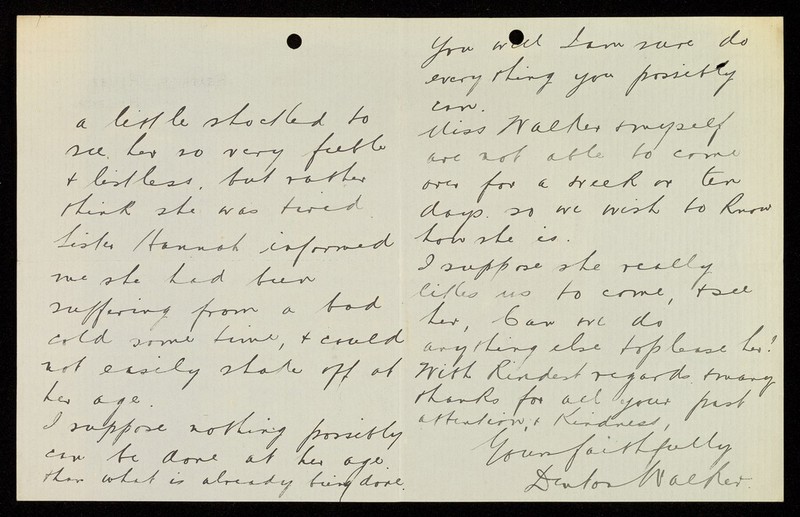 a little shocked to
see her so very feeble
& listless, but rather
think she was tired.
Sister Hannah informed
me she had been
suffering from a bad
cold some time, & could
not easily shake off at
her age.
I suppose nothing possibly
can be done at her age.
than what is already being done.
You will I am sure do
everything you possibly
can.
Miss Walker & myself
are not able to come
over for a week or ten
days. so we wish to know
how she is.
I suppose she really
likes us to come, & see
her, Can we do
anything else to please her!
With Kindest regards & many
thanks for all your past
attention, & Kindness,
Yours faithfully
Denton Walker.